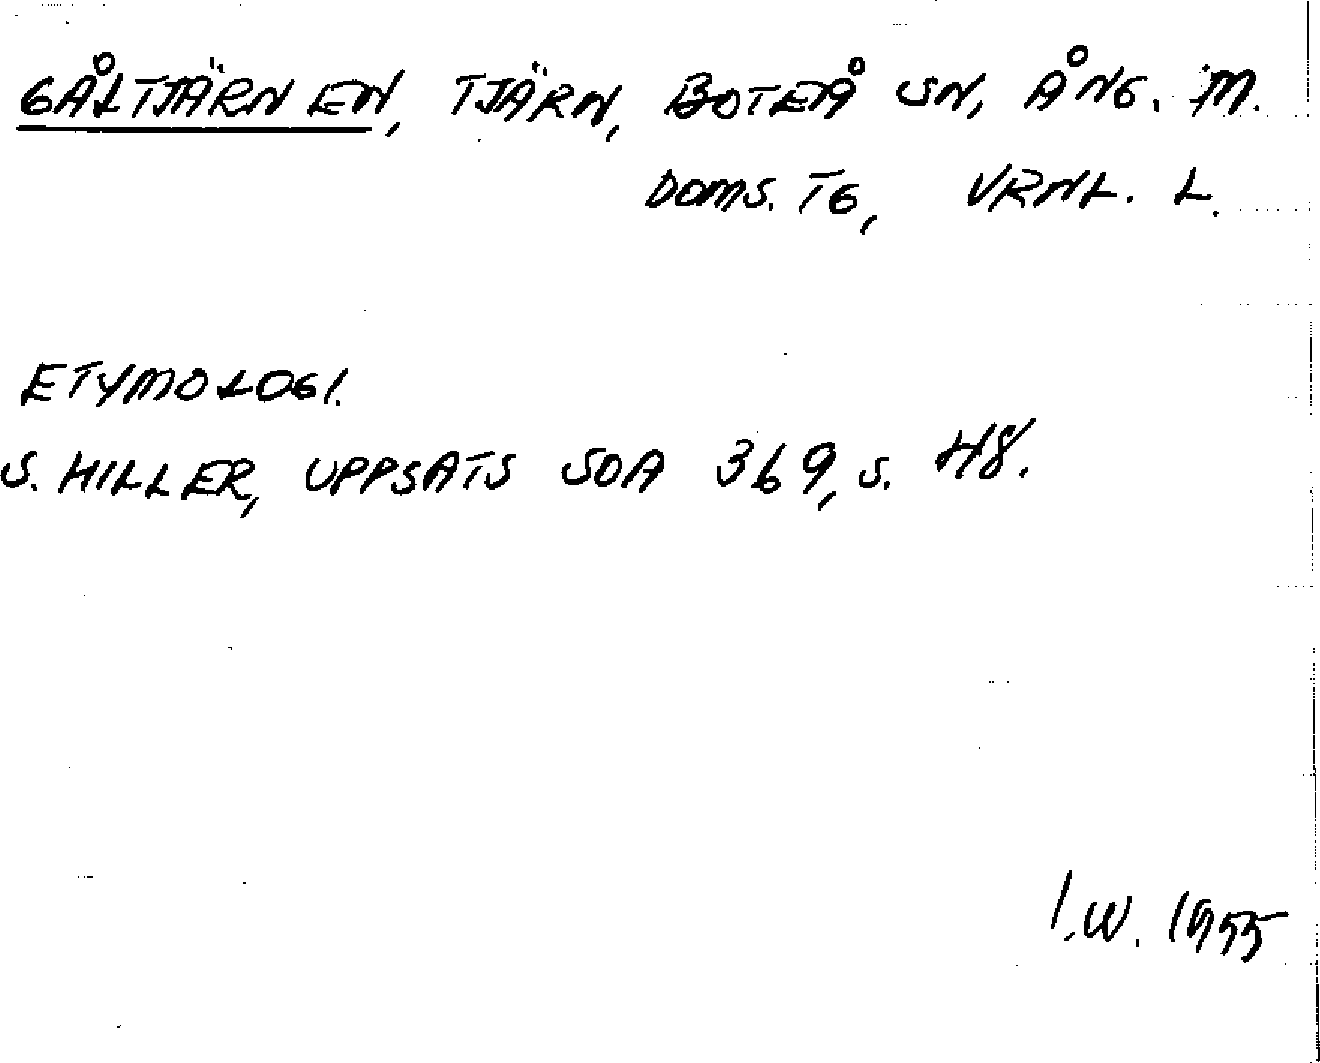 GÅLTJÄRNEN, TJÄRN, BOTEÅ SN, ÅNG. M.
DOMS. TG, VRNL. L.
ETYMOLOGI.
S. HILLER, UPPSATS SOA 369, S. 48.
I.W. 1955